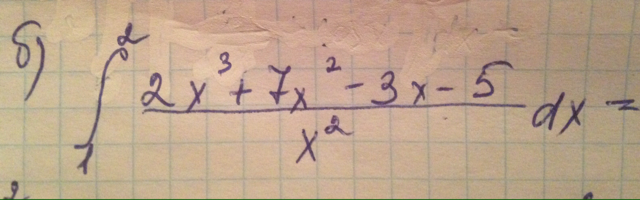 б) ∫₁² (2x³ + 7x² - 3x - 5) / x² dx =